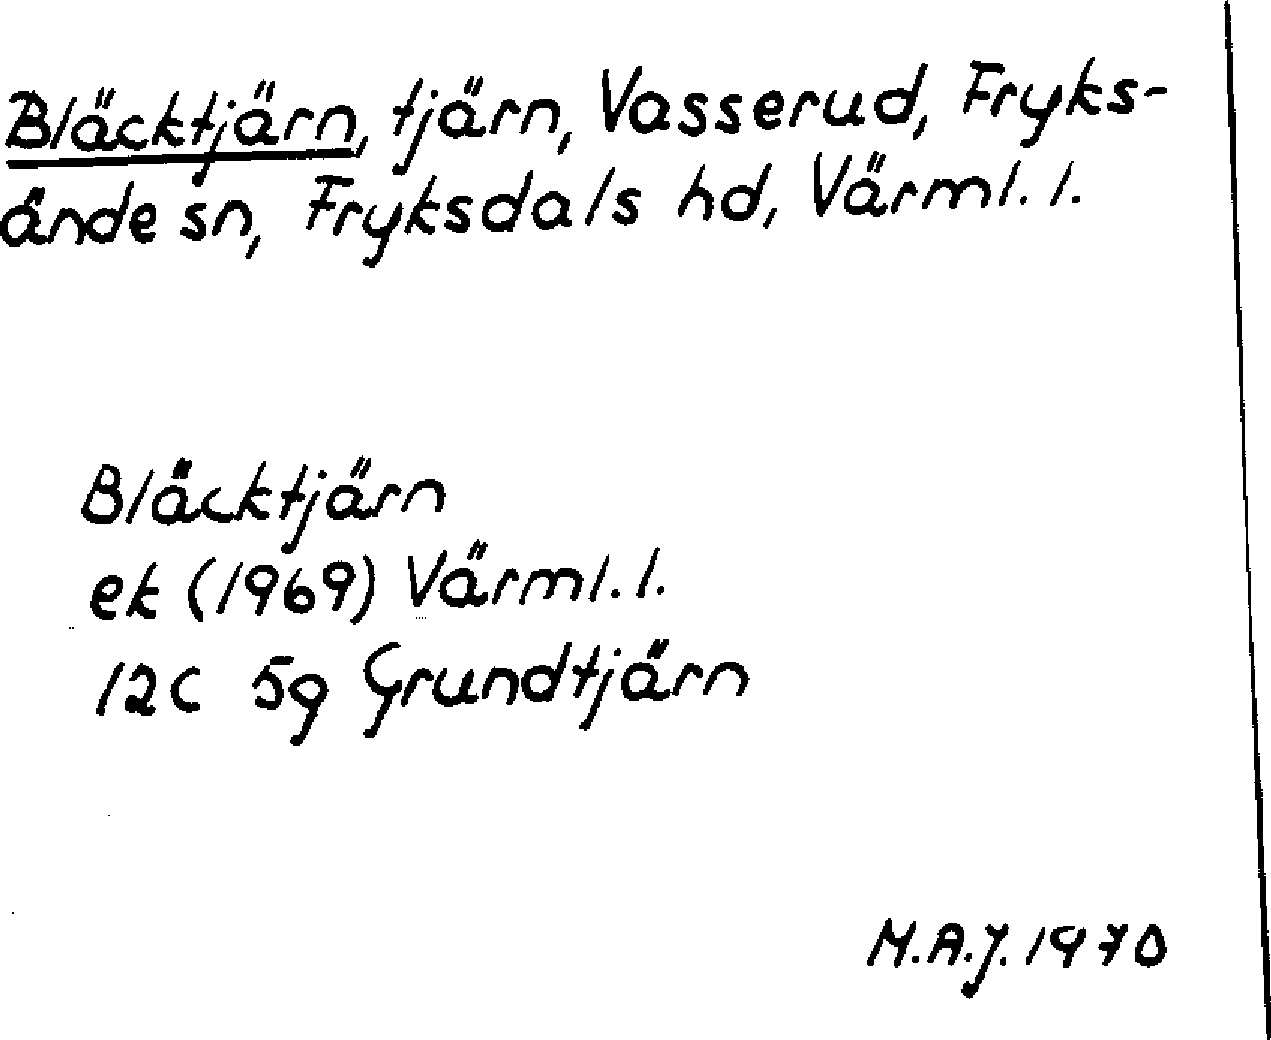 Bläcktjärn, tjärn, Vasserud, Fryks-
ände sn, Fryksdals hd, Värml. l.
Bläcktjärn
ek (1969) Värml. l.
12C 5g Grundtjärn
M.A.J. 1970